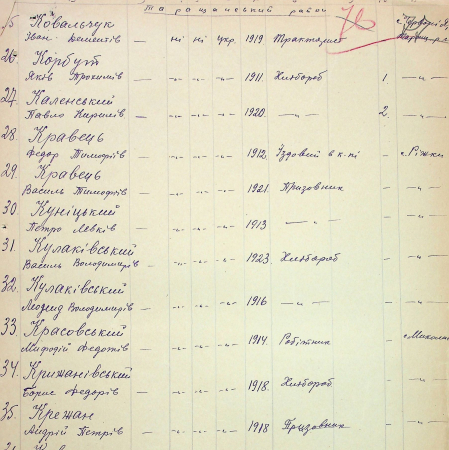 Таращанський район
Ковальчук
Іван Дементів ні ні укр. 1919 Тракторист
26. Корбут
Яків Трохимів —„— —„— —„— 1911. Хлібороб 1. —„—
27. Каленський
Павло Кирилів —„— —„— —„— 1920. —„— 2. —„—
28. Кравець
Федор Тимофіїв —„— —„— —„— 1912. Їздовий в к-пі с. Ріжки
29. Кравець
Василь Тимофіїв —„— —„— —„— 1921. Призовник —„—
30. Куніцький
Петро Левків —„— —„— —„— 1913 —„— —„—
31. Кулаківський
Василь Володимирів —„— —„— —„— 1923 Хлібороб —„—
32. Кулаківський
Леонид Володимирів —„— —„— —„— 1916 —„— —„—
33. Красовський
Мифодій Федотів —„— —„— —„— 1914. Робітник
34. Крижанівський
Борис Федорів —„— —„— —„— 1918. Хлібороб —„—
35. Крежан
Андрій Петрів —„— —„— —„— 1918 Призовник —„—